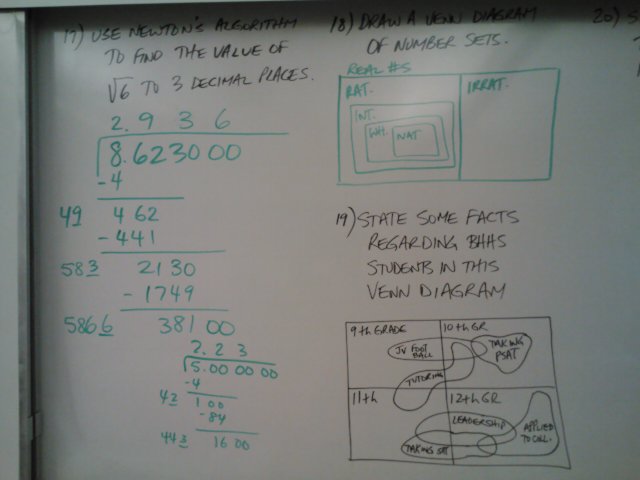 17) USE NEWTON'S ALGORITHM
TO FIND THE VALUE OF
√6 TO 3 DECIMAL PLACES.
2. 9 3 6
8.623000
-4
49 4 62
- 441
583 2130
- 1749
5866 38100
2. 2 3
5.00 00 00
-4
42 1 00
-84
443 16 00
18) DRAW A VENN DIAGRAM
OF NUMBER SETS.
REAL #S
RAT. IRRAT.
INT.
WH. NAT
19) STATE SOME FACTS
REGARDING BHHS
STUDENTS IN THIS
VENN DIAGRAM
9th GRADE 10th GR
JV FOOT
BALL
TAKING
PSAT
TUTORING
11th 12th GR
LEADERSHIP
APPLIED
TO COLL.
TAKING SAT
20)